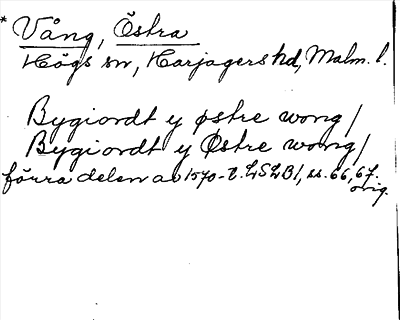 * Vång, Östra
Högs sn, Harjagers hd, Malm. l.
Bygiordt y østre wong/
Bygiordt y Østre wong/
förra delen av 1570-t. LSLB1, ss. 66, 67.
orig.